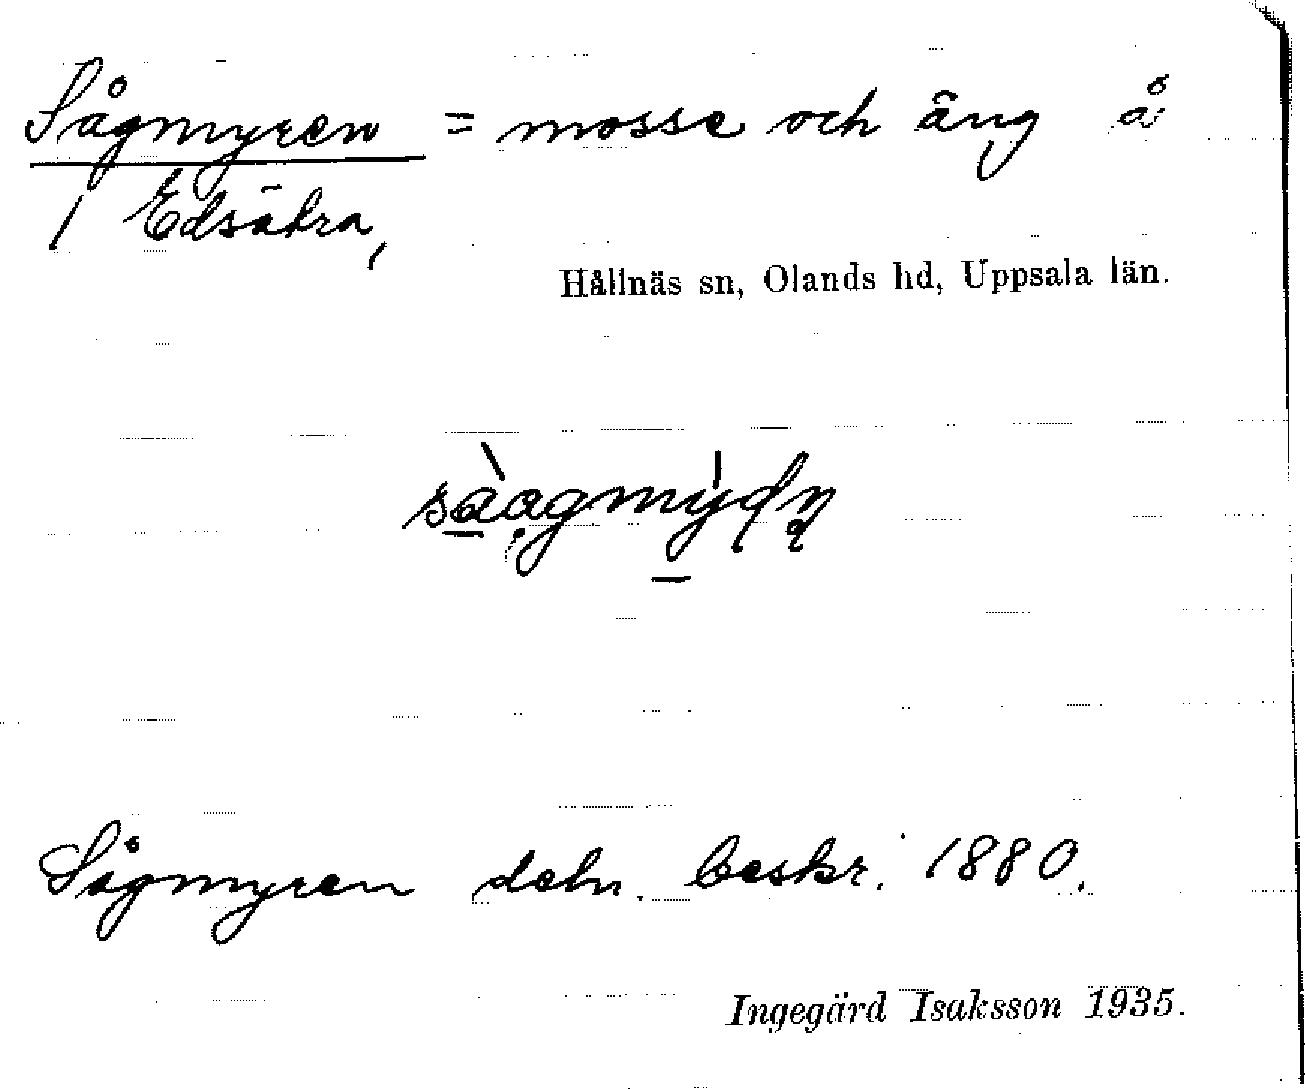 Sågmyren = mosse och äng å
1 Edsätra,
Hållnäs sn, Olands hd, Uppsala län.
Sågmyren debr. beskr. 1880.
Ingegärd Isaksson 1935.